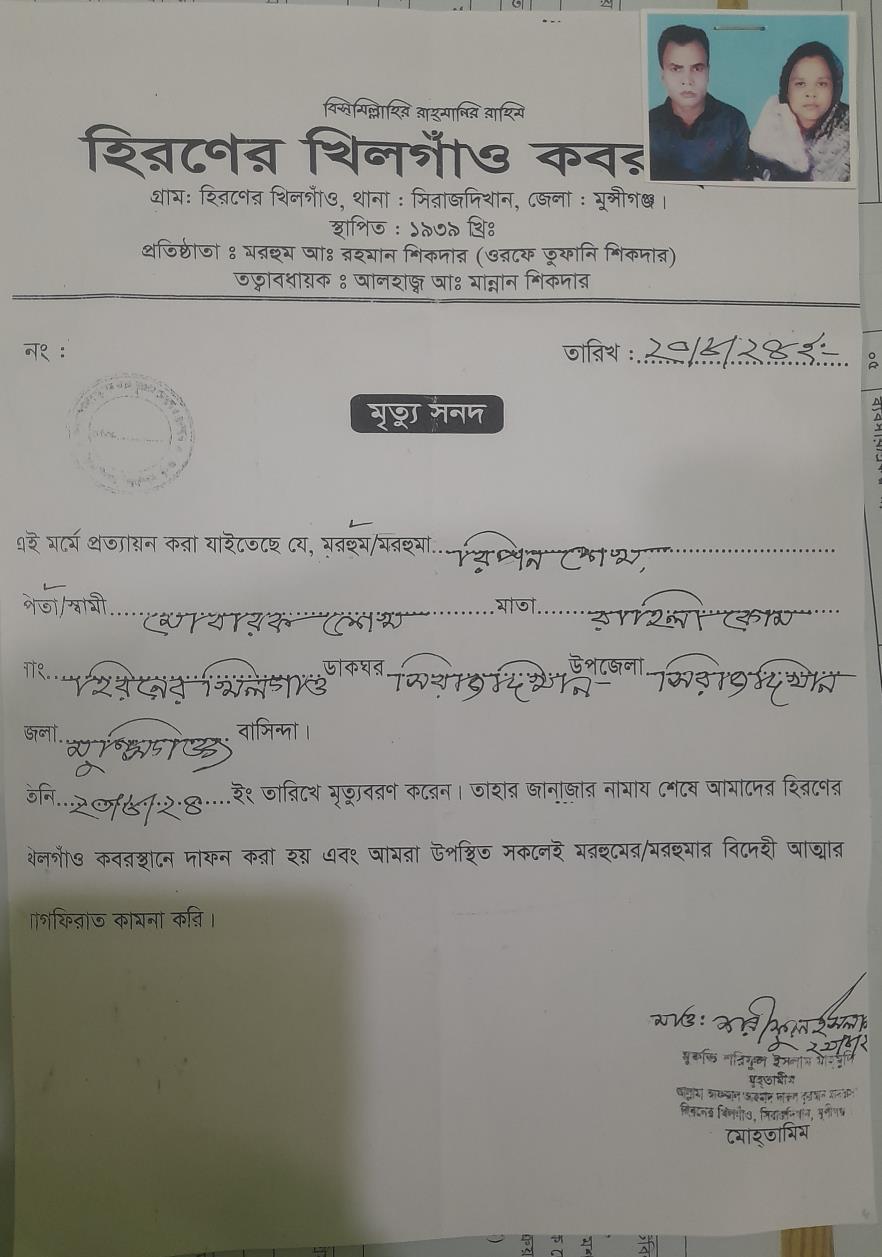 বিসমিল্লাহির রাহমানির রাহিম
হিরণের খিলগাঁও কবর
গ্রাম: হিরণের খিলগাঁও, থানা : সিরাজদিখান, জেলা : মুন্সীগঞ্জ।
স্থাপিত : ১৯৩৯ খ্রিঃ
প্রতিষ্ঠাতা ঃ মরহুম আঃ রহমান শিকদার (ওরফে তুফানি শিকদার)
তত্বাবধায়ক ঃ আলহাজ্ব আঃ মান্নান শিকদার
নং : তারিখ :
মৃত্যু সনদ
এই মর্মে প্রত্যায়ন করা যাইতেছে যে, মরহুম/মরহুমা রিপন শেখ,
পিতা/স্বামী মোবারক শেখ মাতা রাহিলা বেগম
সাং হিরনের খিলগাঁও ডাকঘর সিরাজদিখান উপজেলা সিরাজদিখান
জেলা মুন্সিগঞ্জ বাসিন্দা।
তিনি ইং তারিখে মৃত্যুবরণ করেন। তাহার জানাজার নামায শেষে আমাদের হিরণের
খিলগাঁও কবরস্থানে দাফন করা হয় এবং আমরা উপস্থিত সকলেই মরহুমের/মরহুমার বিদেহী আত্মার
মাগফিরাত কামনা করি।
মাও:
মুফতি শরিফুল ইসলাম
মুহতামীম
হিরনের খিলগাঁও, সিরাজদিখান, মুন্সীগঞ্জ
মোহ্তামিম